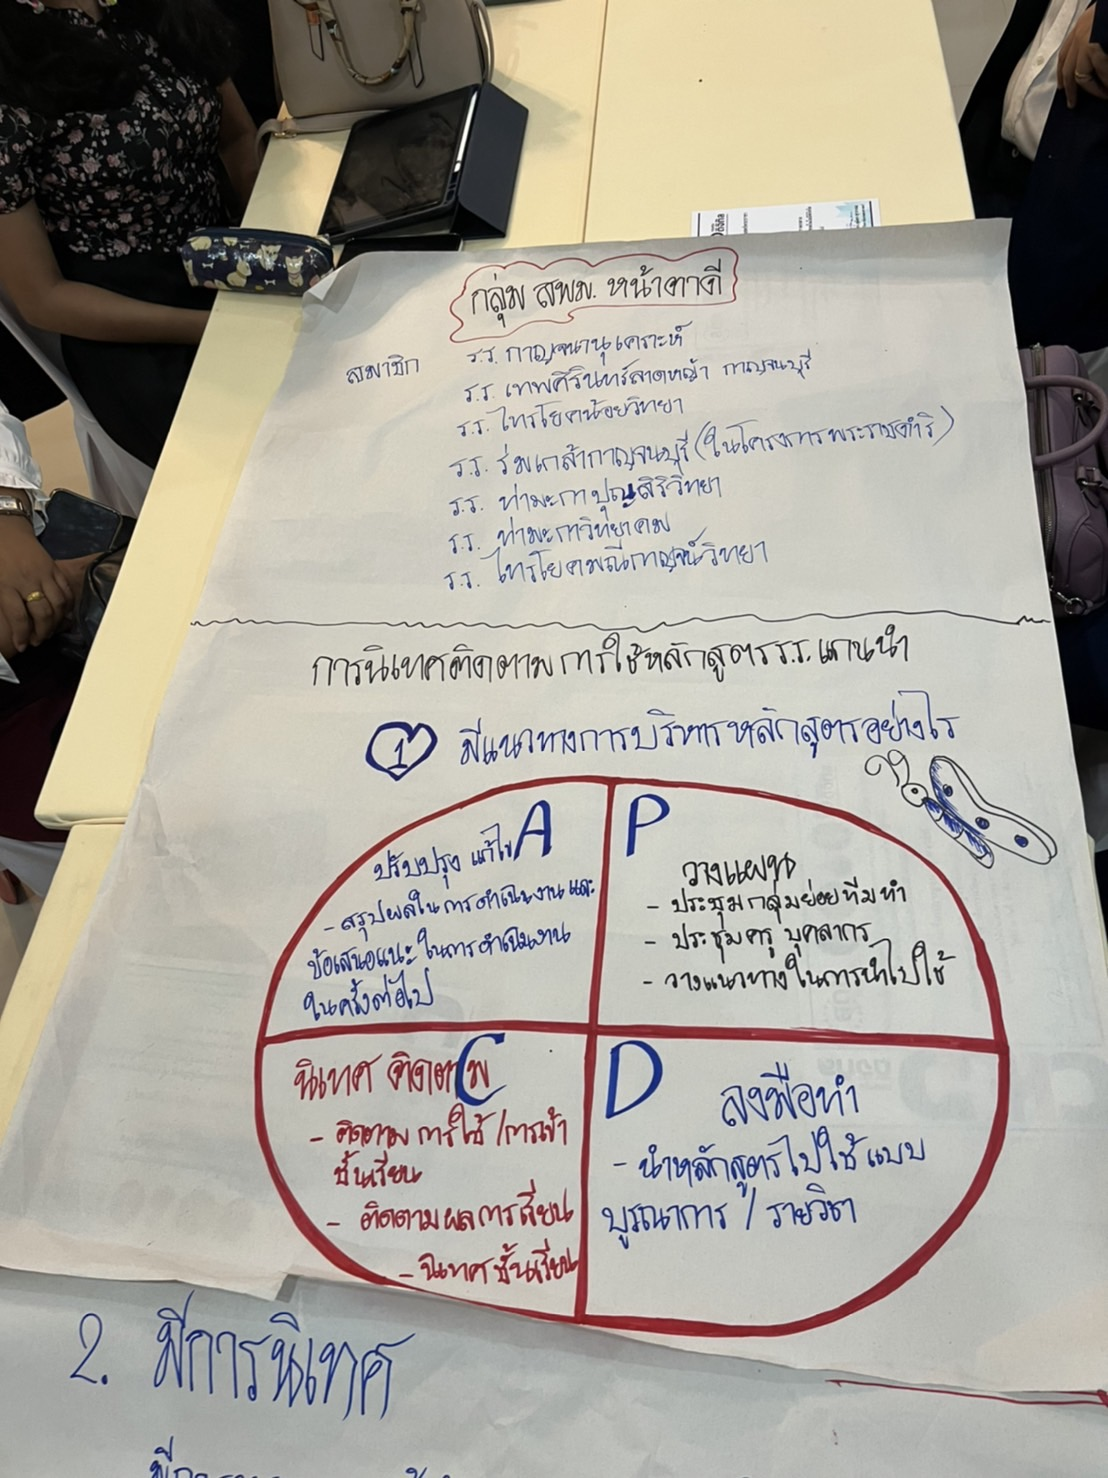 กลุ่ม สพม. หน้าตาดี
สมาชิก ร.ร. กาญจนานุเคราะห์
ร.ร. เทพศิรินทร์ลาดหญ้า กาญจนบุรี
ร.ร. ไทรโยคน้อยวิทยา
ร.ร. ร่มเกล้ากาญจนบุรี (ในโครงการพระราชดำริ)
ร.ร. ท่ามะกาปุญสิริวิทยา
ร.ร. ท่ามะกาวิทยาคม
ร.ร. ไทรโยคมณีกาญจน์วิทยา
การนิเทศติดตามการใช้หลักสูตร ร.ร. แกนนำ
1 มีแนวทางการบริหารหลักสูตรอย่างไร
A
ปรับปรุง แก้ไข
- สรุปผลในการดำเนินงาน และ
ข้อเสนอแนะในการดำเนินงาน
ในครั้งต่อไป
P
วางแผน
- ประชุมกลุ่มย่อยทีมทำ
- ประชุมครู บุคลากร
- วางแนวทางในการนำไปใช้
C
นิเทศ ติดตาม
- ติดตามการใช้ /การเข้า
ชั้นเรียน
- ติดตามผลการเรียน
- นิเทศชั้นเรียน
D
ลงมือทำ
- นำหลักสูตรไปใช้แบบ
บูรณาการ / รายวิชา
2. มีการนิเทศ